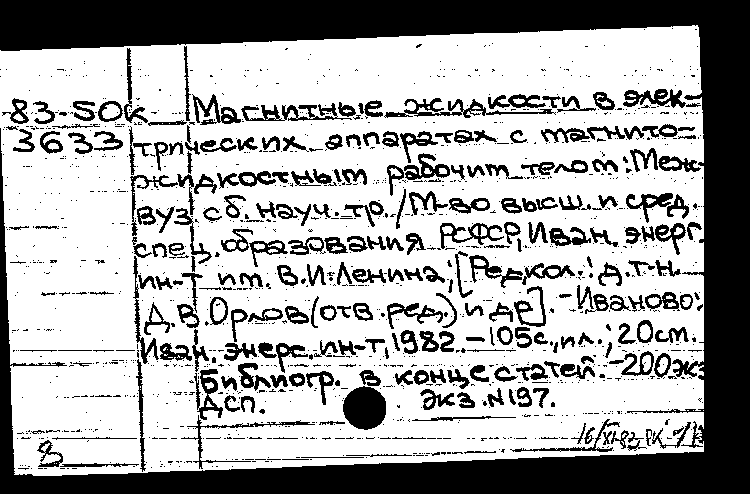 83-50к Магнитные жидкости в элек-
3633 трических аппаратах с магнито-
жидкостным рабочим телом: Меж-
вуз. сб. науч. тр. / М-во высш. и сред.
спец. образования РСФСР, Иван. энерг.
ин-т им. В.И. Ленина; [Редкол.: д.т.н.
Д.В. Орлов (отв. ред.) и др]. - Иваново:
Иван. энерг. ин-т, 1982. - 105 с., ил.; 20 см.
Библиогр. в конце статей. - 200 экз
ДСП. Экз. N 197.
8 16/XI-83